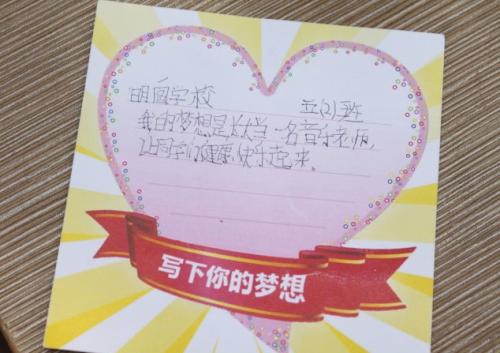 明德学校 五(2)班
我的梦想是长大当一名音乐老师,
让同学们健康快乐起来。
写下你的梦想